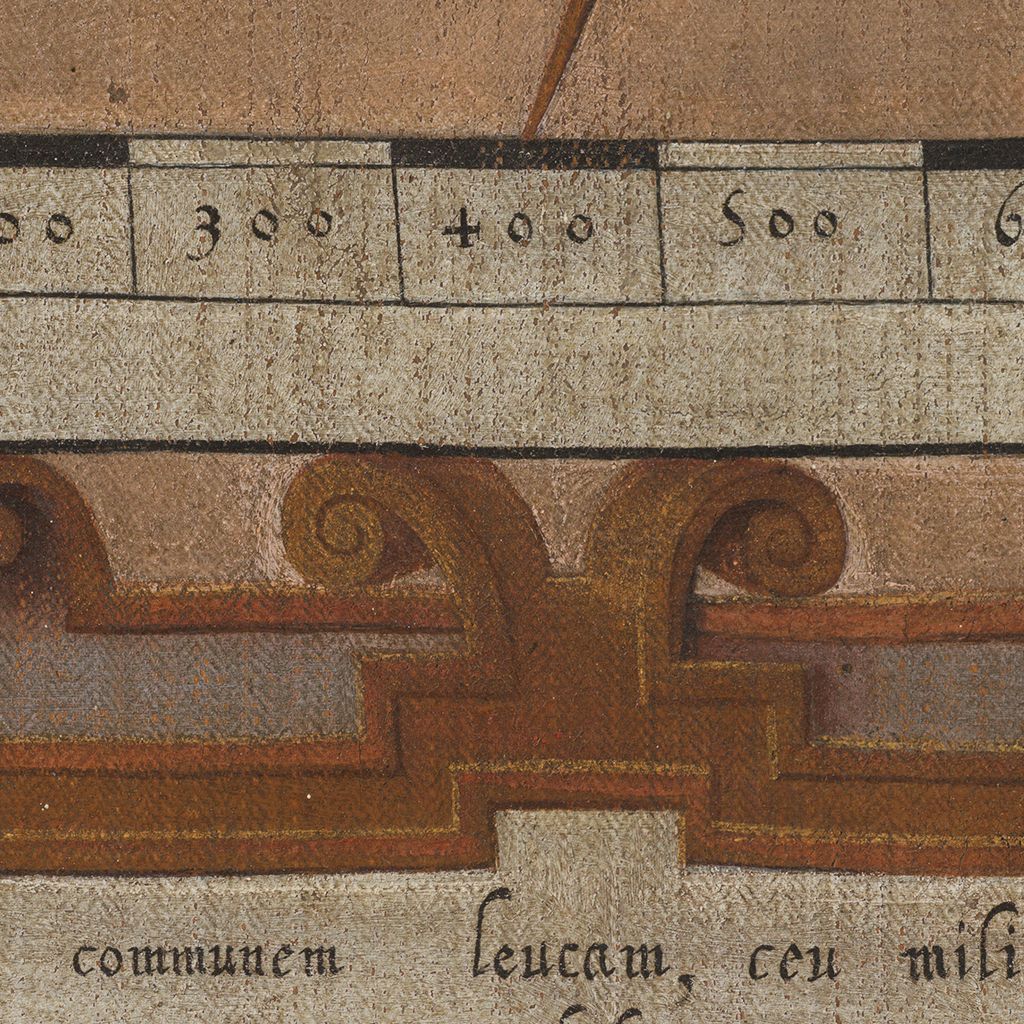 00 300 400 500 6
communem leucam, ceu mili